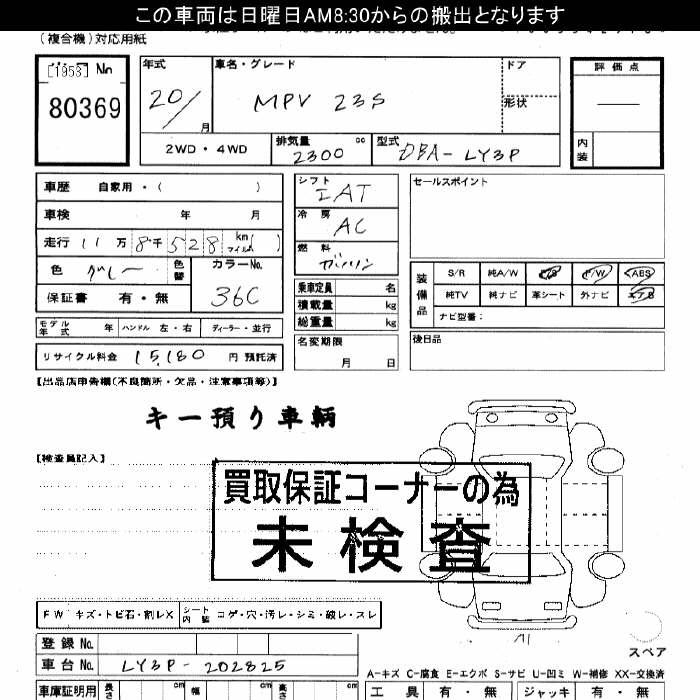 この車両は日曜日AM8:30からの搬出となります
(複合機)対応用紙
[1953] No
80369
年式 20/ 月
車名・グレード MPV 23S
ドア
形状
評価点
内装
2WD・4WD
排気量 2300 cc
型式 DBA-LY3P
車歴 自家用・( )
車検 年 月
走行 11万8千528 km マイル( )
色 グレー 色替
カラーNo. 36C
保証書 有・無
モデル年式 年 ハンドル 左・右 ディーラー・並行
リサイクル料金 15,180 円 預託済
シフト IAT
冷房 AC
燃料 ガソリン
乗車定員 名
積載量 kg
総重量 kg
名変期限
月 日
セールスポイント
装備品
S/R 純A/W P/S P/W ABS
純TV 純ナビ 革シート 外ナビ エアB
ナビ型番:
後日品
【出品店申告欄(不良箇所・欠品・注意事項等)】
キー預り車輌
【検査員記入】
買取保証コーナーの為
未検査
FW キズ・トビ石・割レX シート内装 コゲ・穴・汚レ・シミ・破レ・スレ
登録No.
車台No. LY3P-202825
スペア
A-キズ C-腐食 E-エクボ S-サビ U-凹ミ W-補修 XX-交換済
車庫証明用 長さ cm 幅 cm 高さ cm
工具 有・無 ジャッキ 有・無